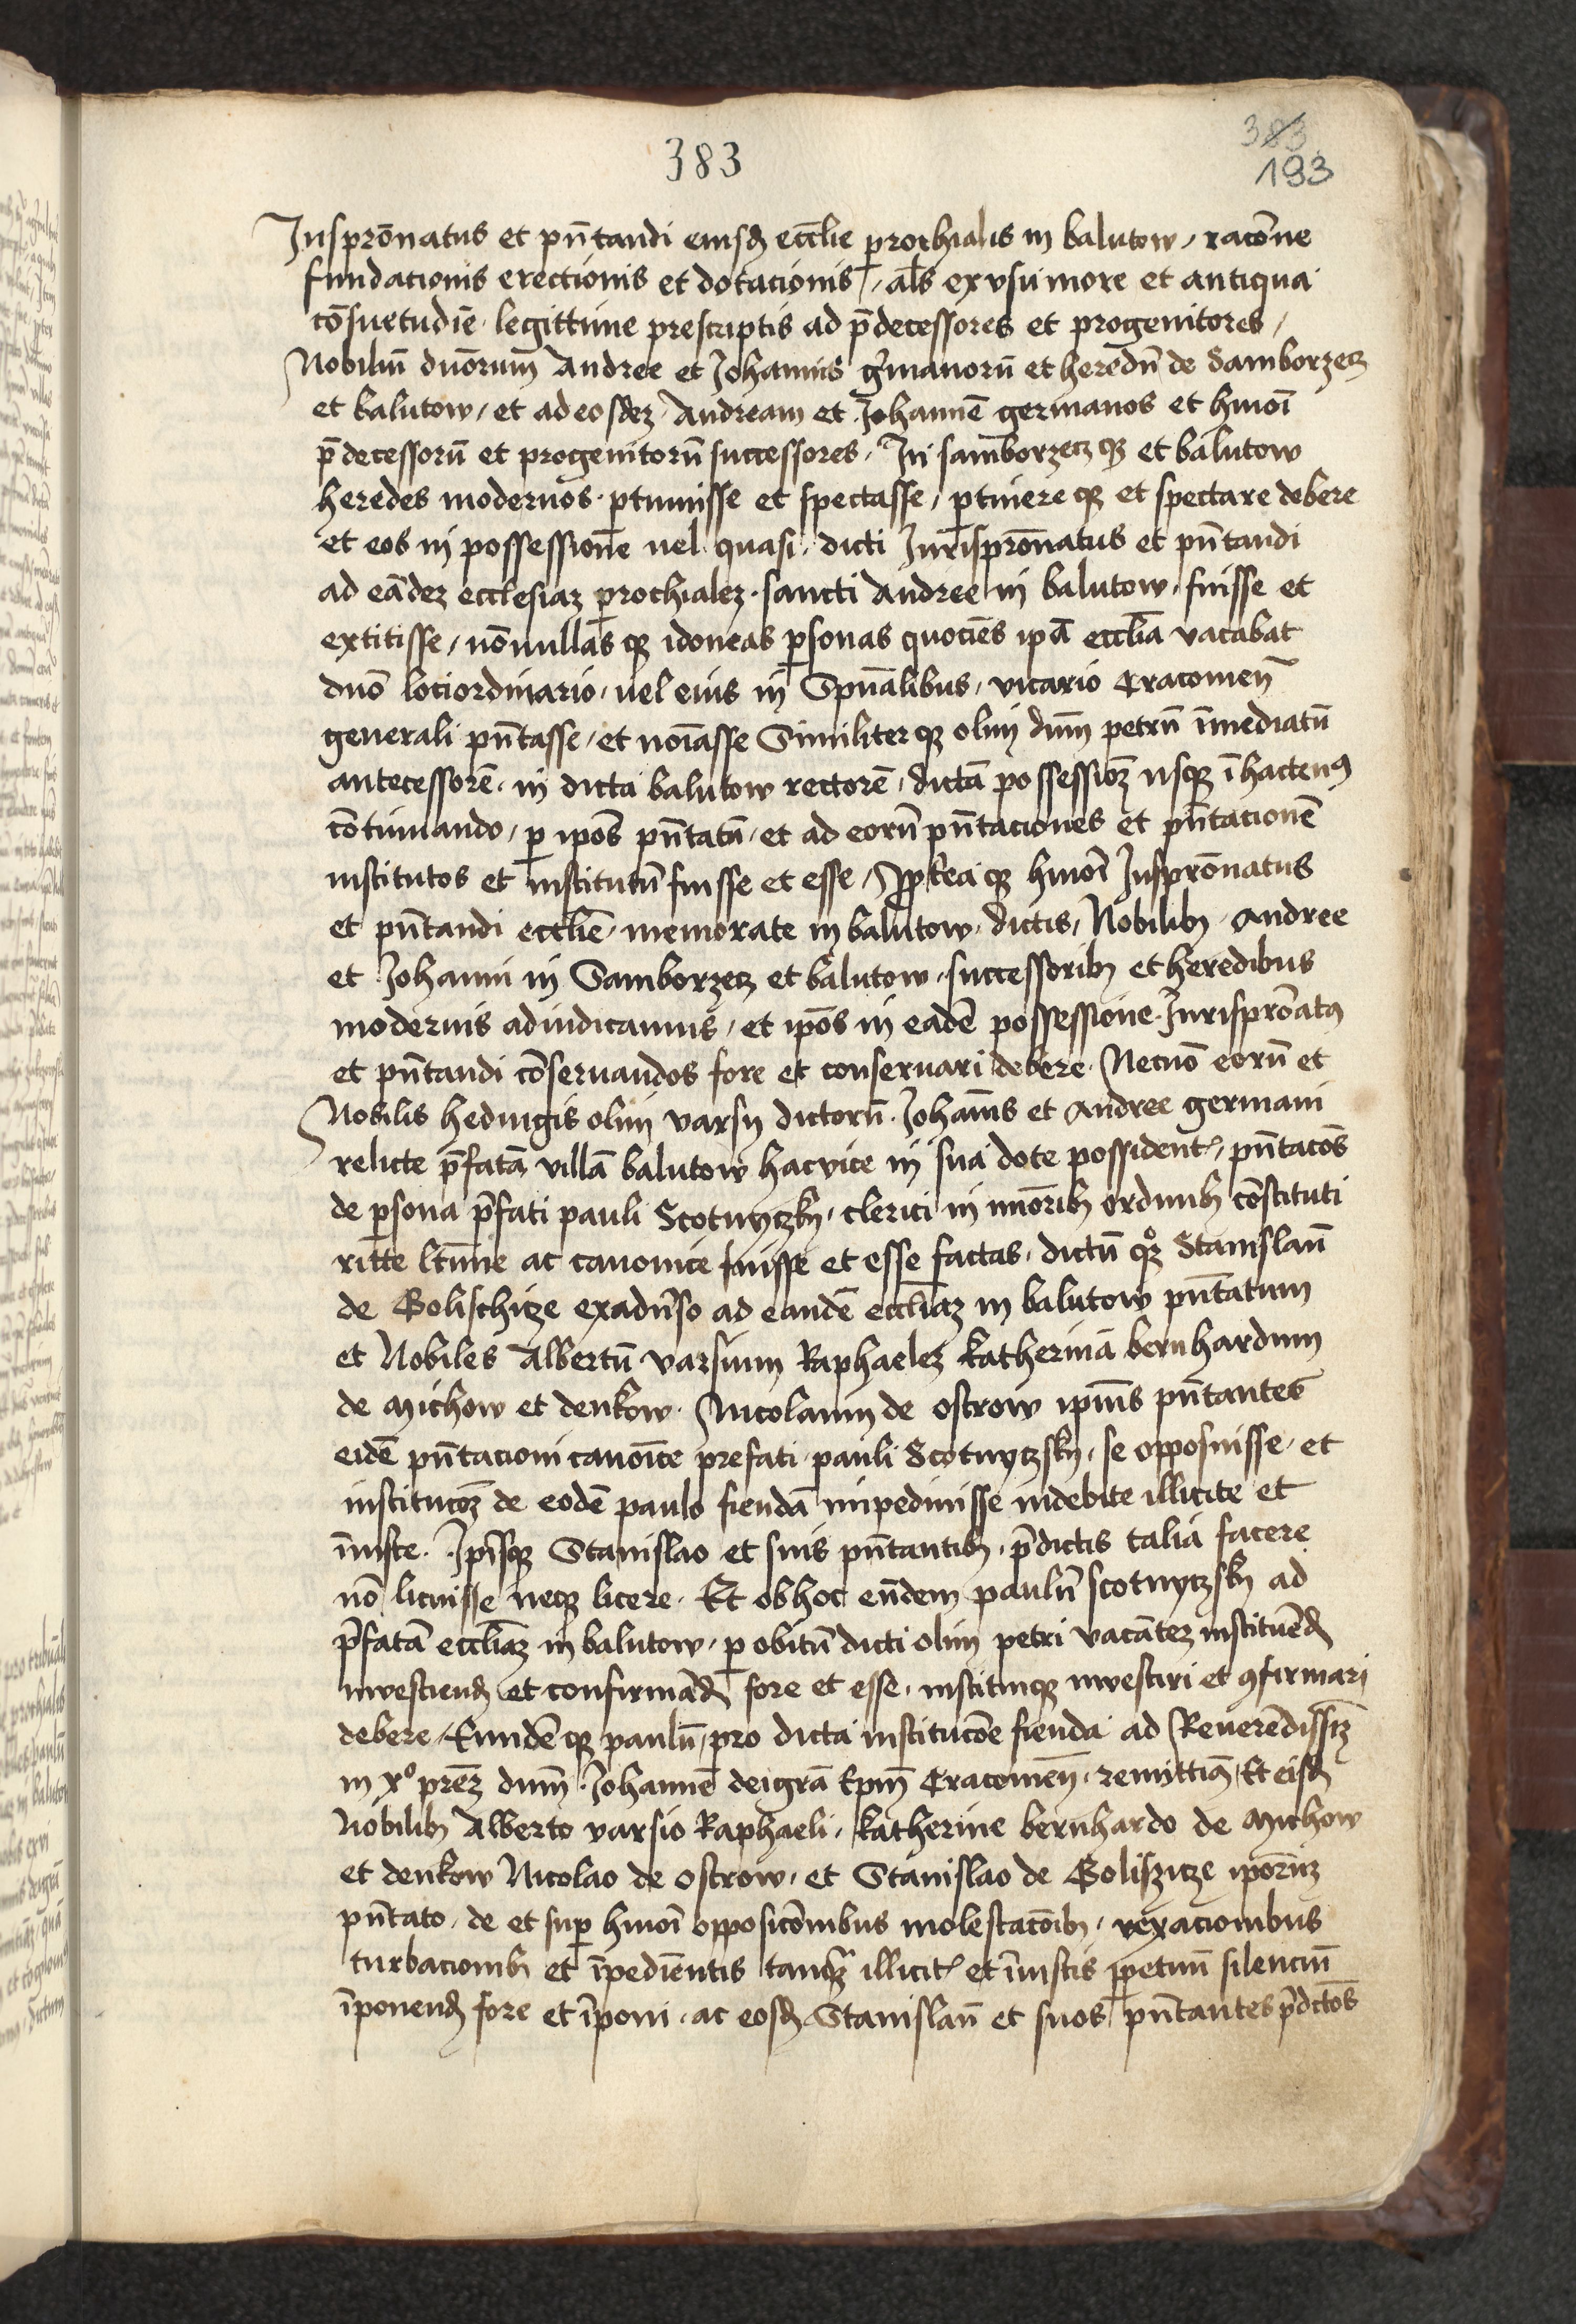 383
383
193
Juspron̄atus et pn̄tandi eiusd ecclie prochialis in balutow, racōne
fundacionis erectionis et dotacionis, als ex vsu more et antiqua
cōsuetudiē legittime prescriptis ad p̄decessores et progenitores,
Nobiliū duōrum Andree et Johannis ḡmanorū et heredū de Samborzecz
et balutow, et ad eosdez Andream et Johannē germanos et hmōi
p̄decessorū et progenitorū successores, In samborzecz qz et balutow
heredes modernos ptinuisse et spectasse, ptinere qz et spectare debere
et eos in possessione uel quasi dicti Jurispron̄atus et pn̄tandi
ad eādez ecclesiaz prochialez sancti Andree in balutow fuisse et
extitisse, nōnullas qz idoneas psonas quociēs ipā eccliā vacabat
dnō lociordinario, uel eius in Spūalibus, vicario Cracouien̄
generali pn̄tasse, et noīasse Similiter qz olim dnm̄ petrū īmediatū
antecessorē in dicta balutow rectorē, dictā possessioz usqz ī hactenꝰ
cōtinuando, p ipōs pn̄tatū, et ad eorū pn̄taciones et pn̄tacionē
institutos et institutū fuisse et esse, Proptea qz hmōi Juspron̄atus
et pn̄tandi ecclīe memorate in balutow dictis, Nobilibz Andree
et Johanni in Samborzecz et balutow, successoribz et heredibus
modernis adiudicamus, et ipōs in eadē possessione Jurispron̄atꝰ
et pn̄tandi cōseruandos fore et conseruari debere Necnō eorū et
Nobilis hedwigis olim varsij dictorū Johānis et Andree germani
relicte p̄fatā villā balutow hac vice in sua dote possident, pn̄tacōs
de psona p̄fati pauli Scotnyczky, clerici in minōribz ordinibz cōstituti
ritte ltīme ac canonice fuisse et esse factas, dictū qz Stanislaū
de Golischicze exadūso ad eandē eccliaz in balutow pn̄tatum
et Nobiles Albertū varsium Raphaelez katherinā bernhardum
de michow et denkow Nicolaum de ostrow ipius pn̄tantes
eidē pn̄tacioni canoīce prefati pauli Scotnyczsky, se opposuisse, et
institucoz de eodē paulo fiendā impediuisse indebite illicite et
iniuste. Ipīsqz Stanislao et suis pn̄tantibz p̄dictis talia facere
nō licuisse neqz licere. Et obhoc eūdem paulū scotnyczsky ad
p̄fatā eccliaz in balutow, p obitū dicti olim petri vacātez instituēd
inuestiend et confirmād fore et esse, instituiqz inuestiri et ꝯfirmari
debere, Eundē qz paulū, pro dicta institucōe fienda ad Reuerēdissīz
in xº prēz dnm̄ Johannē deigrā Epm̄ Cracouien̄ remittimꝰ, Et eisd
Nobilibz Alberto varsio Raphaeli, katherine bernhardo de michow
et denkow Nicolao de ostrow, et Stanislao de Goliszicze ipōruz
pn̄tato, de et sup hmōi opposicōnibus molestacōibz, vexacionibus
turbacionibz et īpedimentis tanqz illicit et īiustis ppetuū silenciū
īponend fore et īponi, ac eosd Stanislaū et suos pn̄tantes p̄dctōs